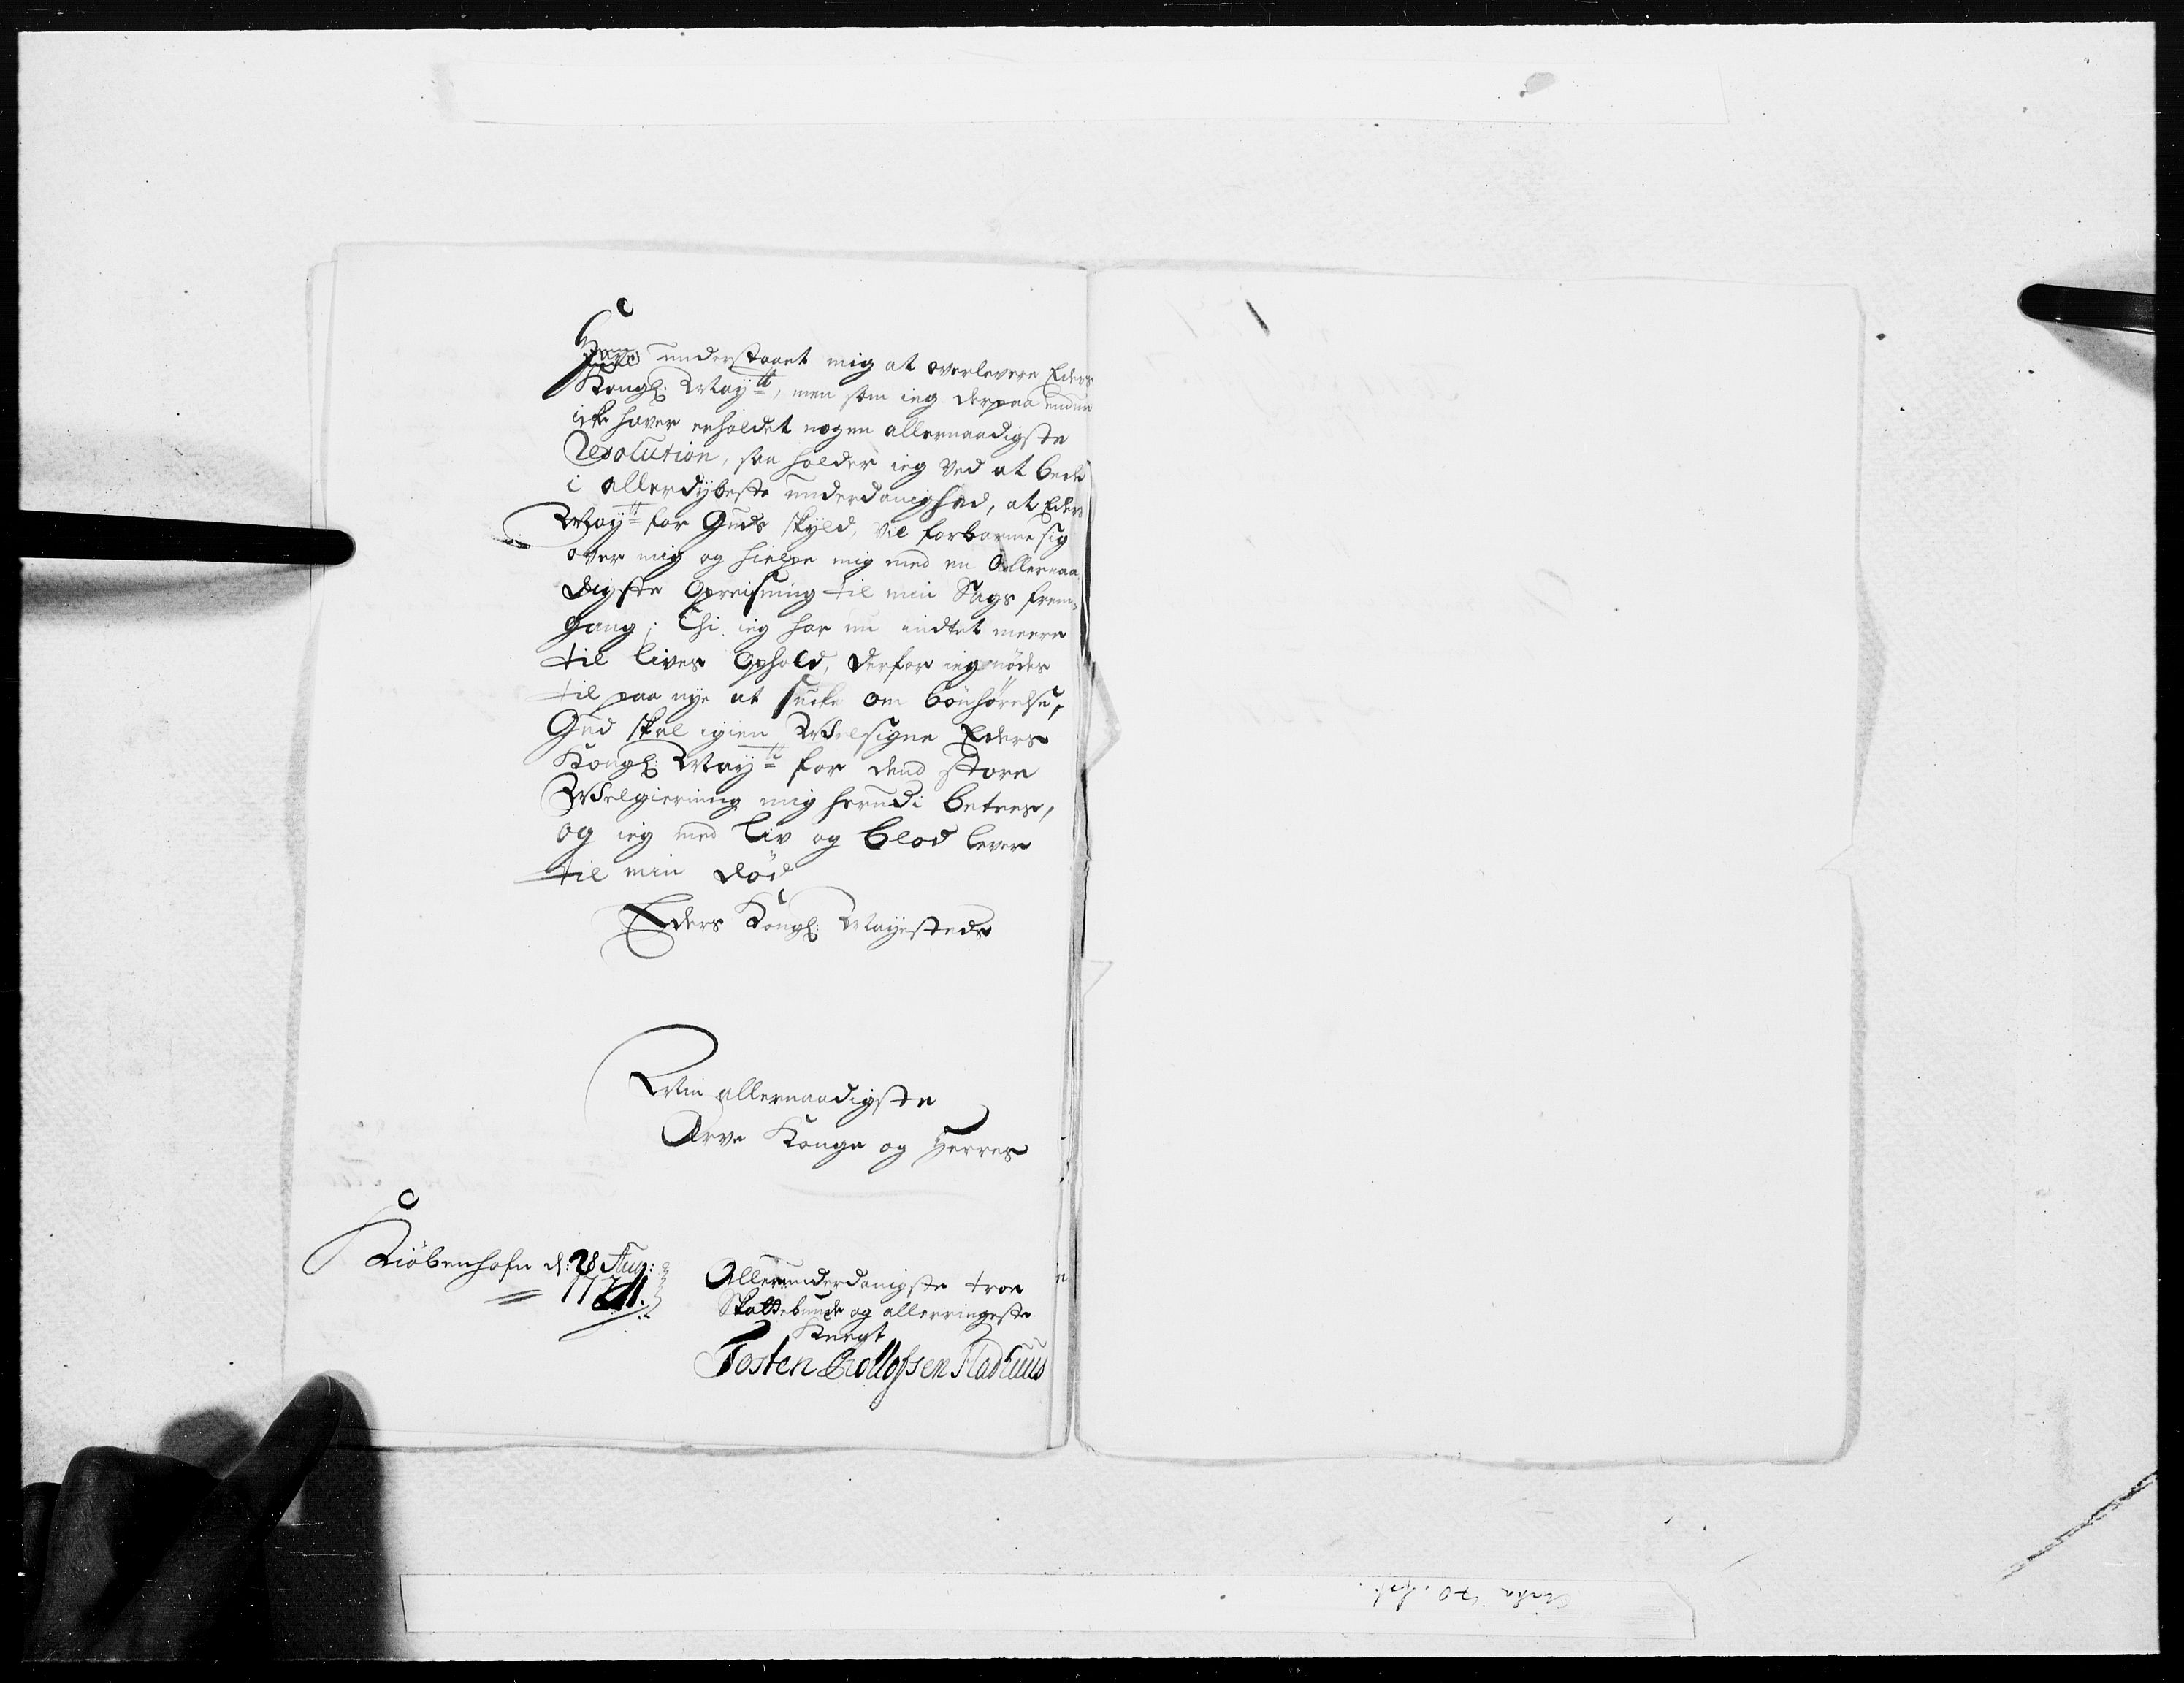 Haver understaaet mig at overlevere Eders
Kongl: Mayᵗᵗ, men som ieg derpaa endnu
icke haver erholdet nogen allernaadigste
Resolution, saa holder ieg ved at bede
i allerdybeste underdanighed, at Eders
Mayᵗᵗ for Guds skyld, vil forbarme sig
over mig og hielpe mig med en Allernaa
digste Opreisning til min Sags frem¬
gang; Thi ieg har nu indtet meere
til lives Ophold, derfor ieg nødes
til paa nye at sucke om bönhörelse,
Gud skal igien Welsigne Eders
Kongl: Mayᵗᵗ for dend store
Welgierning mig herudi betees,
og ieg med Liv og blod lever
til min död
Eders Kongl: Mayesteds
Min allernaadigste
Arve Konge og Herres
Kiöbenhafn d: 28 Aug:
1741.
Allerunderdanigste troe
Skatdebunde og allerringeste
Knegt
Tosten Rollofsen Fladhuus